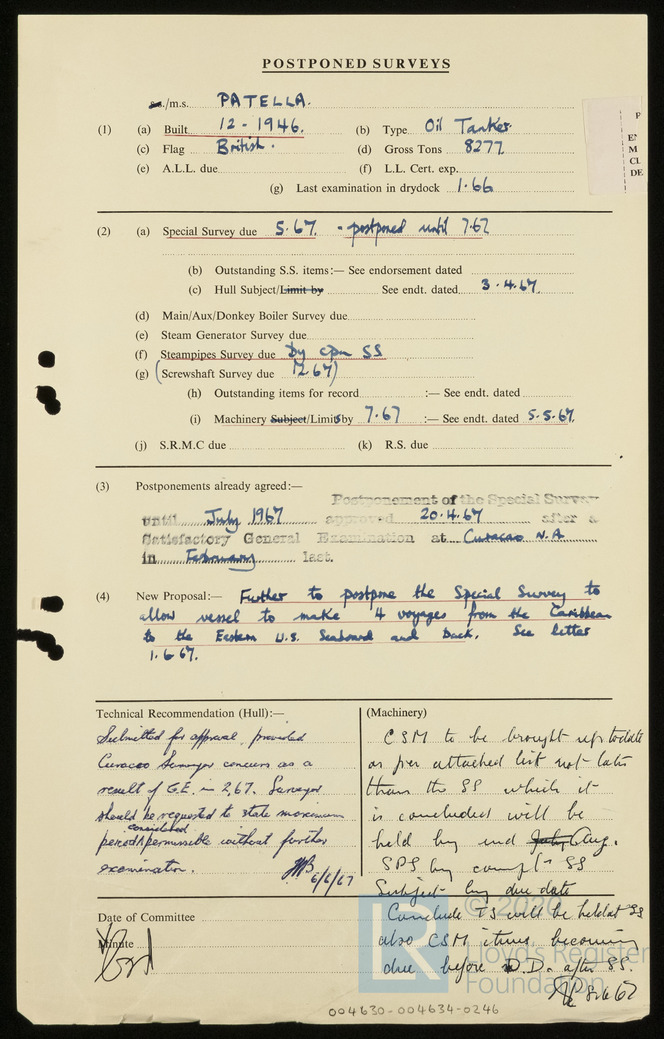 POSTPONED SURVEYS
s.s./m.s. PATELLA.
(1) (a) Built 12 - 1946. (b) Type Oil Tanker
(c) Flag British. (d) Gross Tons 8277
(e) A.L.L. due (f) L.L. Cert. exp.
(g) Last examination in drydock 1.66
(2) (a) Special Survey due 5.67. - postponed until 7.67
(b) Outstanding S.S. items:— See endorsement dated
(c) Hull Subject/Limit by See endt. dated 3.4.67.
(d) Main/Aux/Donkey Boiler Survey due
(e) Steam Generator Survey due
(f) Steampipes Survey due by cpn SS
(g) (Screwshaft Survey due 12.67)
(h) Outstanding items for record :— See endt. dated
(i) Machinery Subject/Limits by 7.67 :— See endt. dated 5.5.67.
(j) S.R.M.C due (k) R.S. due
(3) Postponements already agreed:—
Postponement of the Special Survey
until July 1967 approved 20.4.67 after a
Satisfactory General Examination at Curacao N.A
in February last.
(4) New Proposal:— Further to postpone the Special Survey to
allow vessel to make 4 voyages from the Caribbean
to the Eastern U.S. Seaboard and back. See letter
1.6.67.
Technical Recommendation (Hull):—
Submitted for approval, provided
Curacao Surveyor concurs as a
result of G.E. in 2,67. Surveyor
should be requested to state maximum
period considered permissible without further
examination.
6/6/67
(Machinery)
CSM to be brought up to date
as per attached list not later
than the SS which it
is concluded will be
held by end July Aug.
SPS by compltn SS
Subject by due date
Conclude TS will be held at SS
also CSM items becoming
due before D.D. after SS.
8.6.67
Date of Committee
Minute
© 2020
LR
Lloyd's Register
Foundation
004630-004634-0246
P
E
M
CL
DE